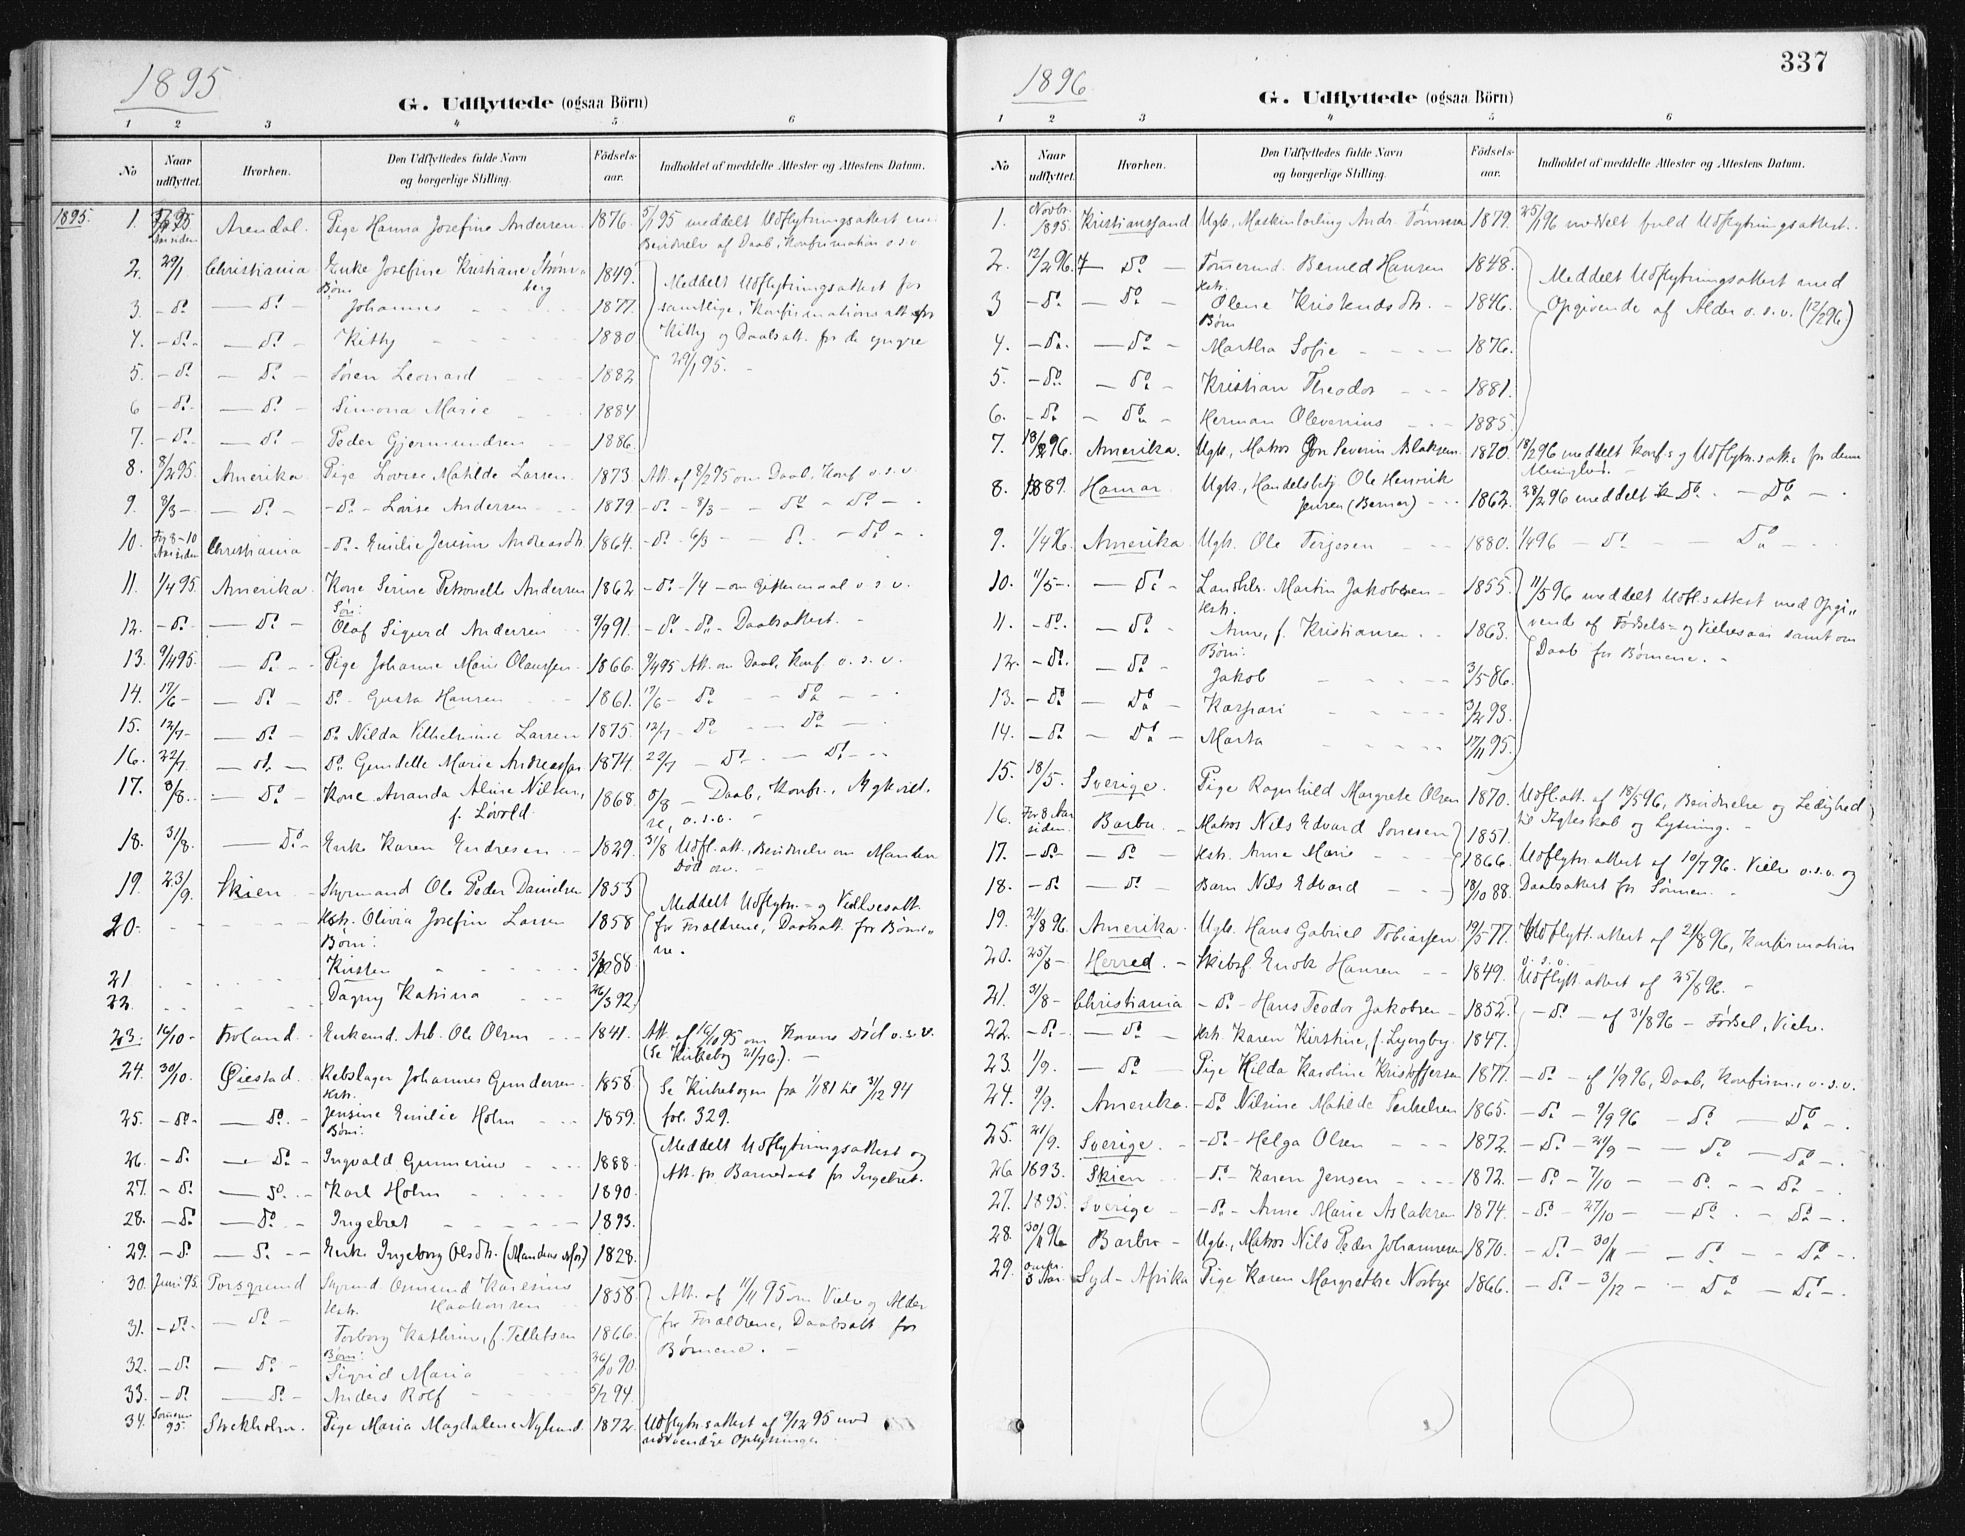 1895
G. Udflyttede (ogsaa Börn)
1 2 3 4 5 6
No Naar udflyttet. Hvorhen. Den Udflyttedes fulde Navn og borgerlige Stilling. Födsels-aar. Indholdet af meddelte Attester og Attestens Datum.
1895. 1. Arendal. Pige Hanna Josefine Andersen 1876. 5/1 95 meddelt Udflytningsattest
af Daab, Konfirmation o.s.v.
2. 29/1 Christiania Enke Josefine Kristiane Strömberg 1849. Meddelt Udflytningsattest for
Børn
3. -do- -do- Johannes 1877. samtlige, Konfirmationsatt. for
4. -do- -do- Kitty 1880 Kitty og Daabsatt. for de yngre
5. -do- -do- Søren Leonard 1882 29/1 95.
6 -do- -do- Simona Marie 1884
7. -do- -do- Peder Gjermundsen 1886.
8. 8/2 95. Amerika Pige Lovise Matilde Larsen 1873 Att. af 8/2 95 om Daab, Konf o.s.v.
9. 8/3 - -do- -do- Lovise Andersen 1879 -do- 8/3 - do - do -
10. For 8-10 Aar siden Christiania -do- Emilie Jensine Andreasdtr. 1864. -do- 6/3 - do - do -
11. 1/4 95. Amerika Kone Serine Petronelle Andersen 1862 -do- 1/4 - om Giftermaal o s v.
Søn:
12. -do- -do- Olaf Sigurd Andersen 9/9 91. -do- do- Daabsattest.
13. 9/4 95. -do- Pige Johanne Marie Olaussen 1866. 9/4 95 Att. om Daab, Konf o. s. v.
14. 17/6 - -do- do- Gusta Hansen 1861. 17/6 - do - do -
15. 12/7 - -do- do Nilda Vilhelmine Larsen 1875. 12/7 - do - do -
16. 22/7 -do- do. Gundelle Marie Andreassen 1874. 22/7 - do - do -
17. 8/8 -do- Kone Amanda Aline Nilsen, 1868. 8/8 - Daab, Konfr.,
f. Løvold. o.s.v.
18. 31/8. -do- Enke Karen Endresen 1829. 31/8 Udfl.att., Bevidnelse om Manden
Død osv.
19. 23/9. Skien Styrmand Ole Peder Danielsen 1853 Meddelt Udflytn.- og Vielsesatt.
20. Hstr. Olivia Josefine Larsen 1858 for Forældrene, Daabsatt. for Børne-
Børn:
Kirsten ne.
21
22. Dagny Katrina 26/3 92.
23. 16/10 - Froland Enkemd. Arb. Ole Olsen 1841. Att. af 16/10 95 om Konens Død o.s.v.
(Se Kirkebog
24. 30/10. Øiestad. Rebslager Johannes Gundersen 1858. Se Kirkebogen fra 1/1 81 til 31/12 94
Hstr.
25. -do- -do- Jensine Emilie Holm 1859. fol. 329.
Børn: Meddelt Udflytningsattest og
26. -do- -do- Ingvald Gunnerius 1888. Att. for Barnedaab for Ingebret.
27. -do- -do- Karl Holm 1890.
28. -do- -do- Ingebret 1893.
29. -do- -do- Enke Ingeborg Olsdtr. (Mandens Mor) 1828.
30. Juni 95. Porsgrund Styrmd. Osmund Karlsenius 1858. Att. af 11/11 95 om Vielse og Alder
Hstr. Haakonsen
31. -do- -do- Torborg Kathrine, f. Tellefsen 1866. for Forældrene, Daabsatt for
Børn:
32. -do- -do- Sigrid Maria 26/10 90. Børnene.
33. -do- -do- Anders Rolf 5/2 94.
34. Sommeren 95. Stockholm. Pige Maria Magdalene Nylund 1872. Udflytn.sattest af 9/12 95 med
nødvendige Oplysninger
337
1896
G. Udflyttede (ogsaa Börn)
1 2 3 4 5 6
No Naar udflyttet. Hvorhen. Den Udflyttedes fulde Navn og borgerlige Stilling. Födsels-aar. Indholdet af meddelte Attester og Attestens Datum.
1. Novbr. 1895. Kristianssand Ugk., Maskinlærling Andr. Tønnesen 1879. 25/1 96 meddelt fuld Udflytningsattest.
2. 12/2 96. -do- Tømermd. Berned Hansen 1848. Meddelt Udflytningsattest med
Hstr.
3 -do- -do- Olene Kristendsdtr. 1846. Opgivende af Alder o.s.v. (12/2 96.)
Børn
4. -do- -do- Martha Sofie 1876.
5. -do- -do- Kristian Theodor 1881.
6. -do- -do- Herman Olevenius 1885.
7. 18/2 96. Amerika. Ugk., Matros Jon Severin Aslaksen 1870. 18/2 96 meddelt Konf- og Udflytn.satt. fr denne
Menighed.
8. 1889. Hamar Ugk., Handelsbtj. Ole Henrik 1862. 28/2 96 meddelt do. - do -
Jensen (Berner)
9. 1/4 96. Amerika Ugk. Ole Terjesen 1880. 1/4 96 - do - do
10. 11/5 -. -do- Landhdl. Martin Jakobsen 1855. 11/5 96 meddelt Udfl.sattest med Opgi-
Hstr.
11. -do- -do- Anne, f. Kristiansen 1863. vende af Fødsels- og Vielsesaar samt om
Børn:
12. -do- -do- Jakob 3/5 86. Daab for Børnene.
13. -do- -do- Kaspari 3/2 93.
14. -do- -do- Marta 17/11 95.
15. 18/5. Sverige. Pige Ragnhild Margrete Olsen 1870. Udfl.att. af 18/5 96, Bevidnelse og Ledighed
til Ægteskab og Lysning.
16. For 8 Aar siden. Barbu Matros Nils Edvard Sonesen 1851.
17. -do- -do- Hstr. Anne Marie 1866. Udflytn.attest af 10/7 96. Vielse o.s.v. og
18. -do- -do- Barn Nils Edvard 18/10 88. Daabsattest for Sønnen.
19. 21/8 96. Amerika. Ugk. Hans Gabriel Tobiassen 19/5 77. Udflytt.attest af 21/8 96, Konfirmation
o.s.v.
20. 25/8 - Herred. Skibsf. Enok Hansen 1849. Udflytt.attest af 25/8 96.
21. 31/8 - Christiania -do- Hans Teodor Jakobsen 1852. -do- af 31/8 96 - Fødsel, Vielse.
22. -do- -do- Hstr. Karen Kirstine, f. Lyngby. 1847.
23. 1/9. -do- Pige Hilda Karoline Kristoffersen 1877. -do- af 1/9 96, Daab, Konfirm., o.s.v.
24. 9/9. Amerika. -do- Nilsine Matilde Terkelsen 1865. -do- 9/9 96 - do - do -
25. 21/9. Sverige. -do- Helga Olsen 1872. -do- 21/9 - do - do -
26 1893. Skien -do- Karen Jensen 1872. -do- 7/10 - do - do -
27. 1895. Sverige -do- Anne Marie Aslaksen 1874. -do- 27/10 - do - do -
28. 30/11 96 Barbu Ugk., Matros Nils Peder Johannesen 1870. -do- 30/11 - do - do -
29. omtr. 3 Aar. Syd-Afrika Pige Karen Margrethe Norbye 1866. -do- 3/12 - do - do -